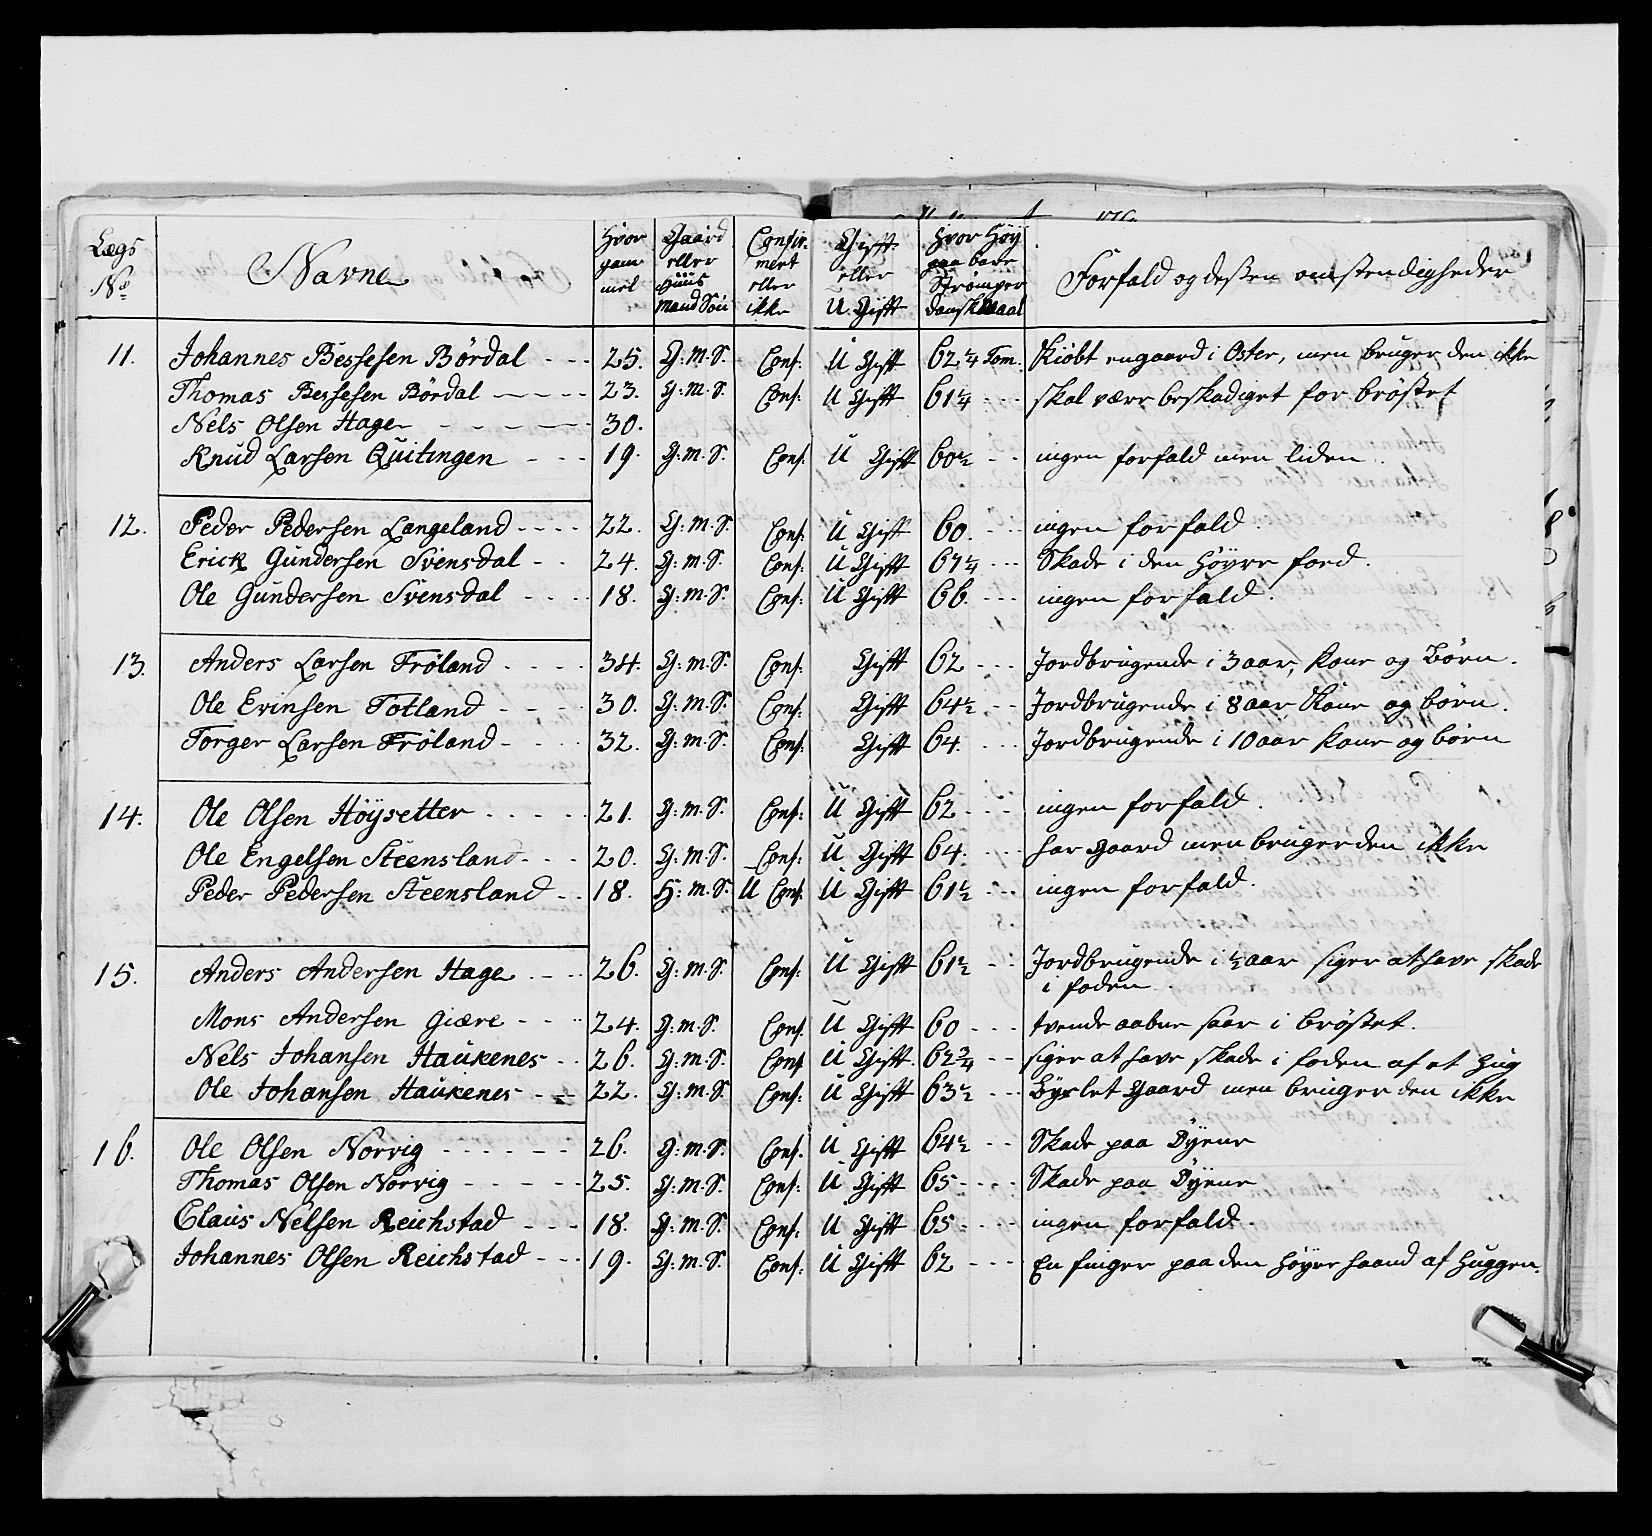 Lægs No | Navne | Hvor gam mel | Gaard eller Huus Mand Søn | Confir mert eller ikke | Gift eller U. Gift | Hvor Høÿ paa bare Strømper Dansk Maal | Forfald og dessen omstendigheder
11. Johannes Bessesen Bördal - - - 25. G: M. S. Conf: U Gift 62 1/4 Tom. Kiöbt en gaard i Oster, men bruger den ikke
Thomas Bessesen Bördal - - - - 23. G: M. S. Conf: U Gift 61 1/4 - - - skal være beskadiget for bröstet
Nels Olsen Hage - - - - - 30.
Knud Larsen Quitingen - - - 19. G: M. S. Conf: U Gift 60 1/2 - - ingen forfald men liden
12. Peder Pedersen Langeland - - - - 22. G: M. S. Conf: U Gift 60. - - - ingen forfald.
Erick Gundersen Svensdal - - 24. G: M. S. Conf: U Gift 67 1/4 - - - Skade i den Höyre foed.
Ole Gundersen Svensdal - - - - 18. G: M. S. Conf: U Gift 66. - - - ingen forfald.
13. Anders Larsen Fröland - - - - 34. G: M. S. Conf: Gift 62 - - - Jordbrugende i 3 aar, Kone og Börn.
Ole Erinsen Totland - - - - 30. G: M. S. Conf: Gift 64 1/2 - - Jordbrugende i 8 aar Kone og börn.
Torger Larsen Fröland - - - - 32. G: M. S. Conf: Gift 64. - - - Jordbrugende i 10 aar Kone og börn
14. Ole Olsen Höysetter - - - - - 21. G: M. S. Conf: U Gift 62 - - - ingen forfald.
Ole Engelsen Steensland - - - 20. G: M. S. Conf: U Gift 64. - - - har gaard men bruger den ikke
Peder Pedersen Steensland - - 18. H: M. S. U Conf. U Gift 61 1/2 - - - ingen forfald.
15. Anders Andersen Hage - - - - 26. G: M. S. Conf: U Gift 61 1/2 - - Jordbrugende i 1/2 aar siger at have skade
i foden.
Mons Andersen Giære - - - 24. G: M. S. Conf. U Gift 60 - - - tvende aabne saar i bröstet.
Nels Johansen Haukenes - - 26. G: M. S. Conf. U Gift. 62 3/4 - - siger at have skade i foden af et Hug
Ole Johansen Haukenes - - - 22. G: M. S. Conf: U Gift 63 1/2 - - - Byxlet Gaard men bruger den ikke
16. Ole Olsen Norvig - - - - - - 26. G: M. S. Conf. U Gift 64 1/2 - - Skade paa Öyene
Thomas Olsen Norvig - - - - - 25. G: M. S. Conf: U Gift 65 - - - - Skade paa Öyene
Claus Nelsen Reichstad - - - 18. G: M. S. Conf: U Gift 65 - - - - ingen forfald.
Johannes Olsen Reichstad - - - 19. G: M. S. Conf: U Gift 62 - - - - En finger paa den höyre haand af huggen.